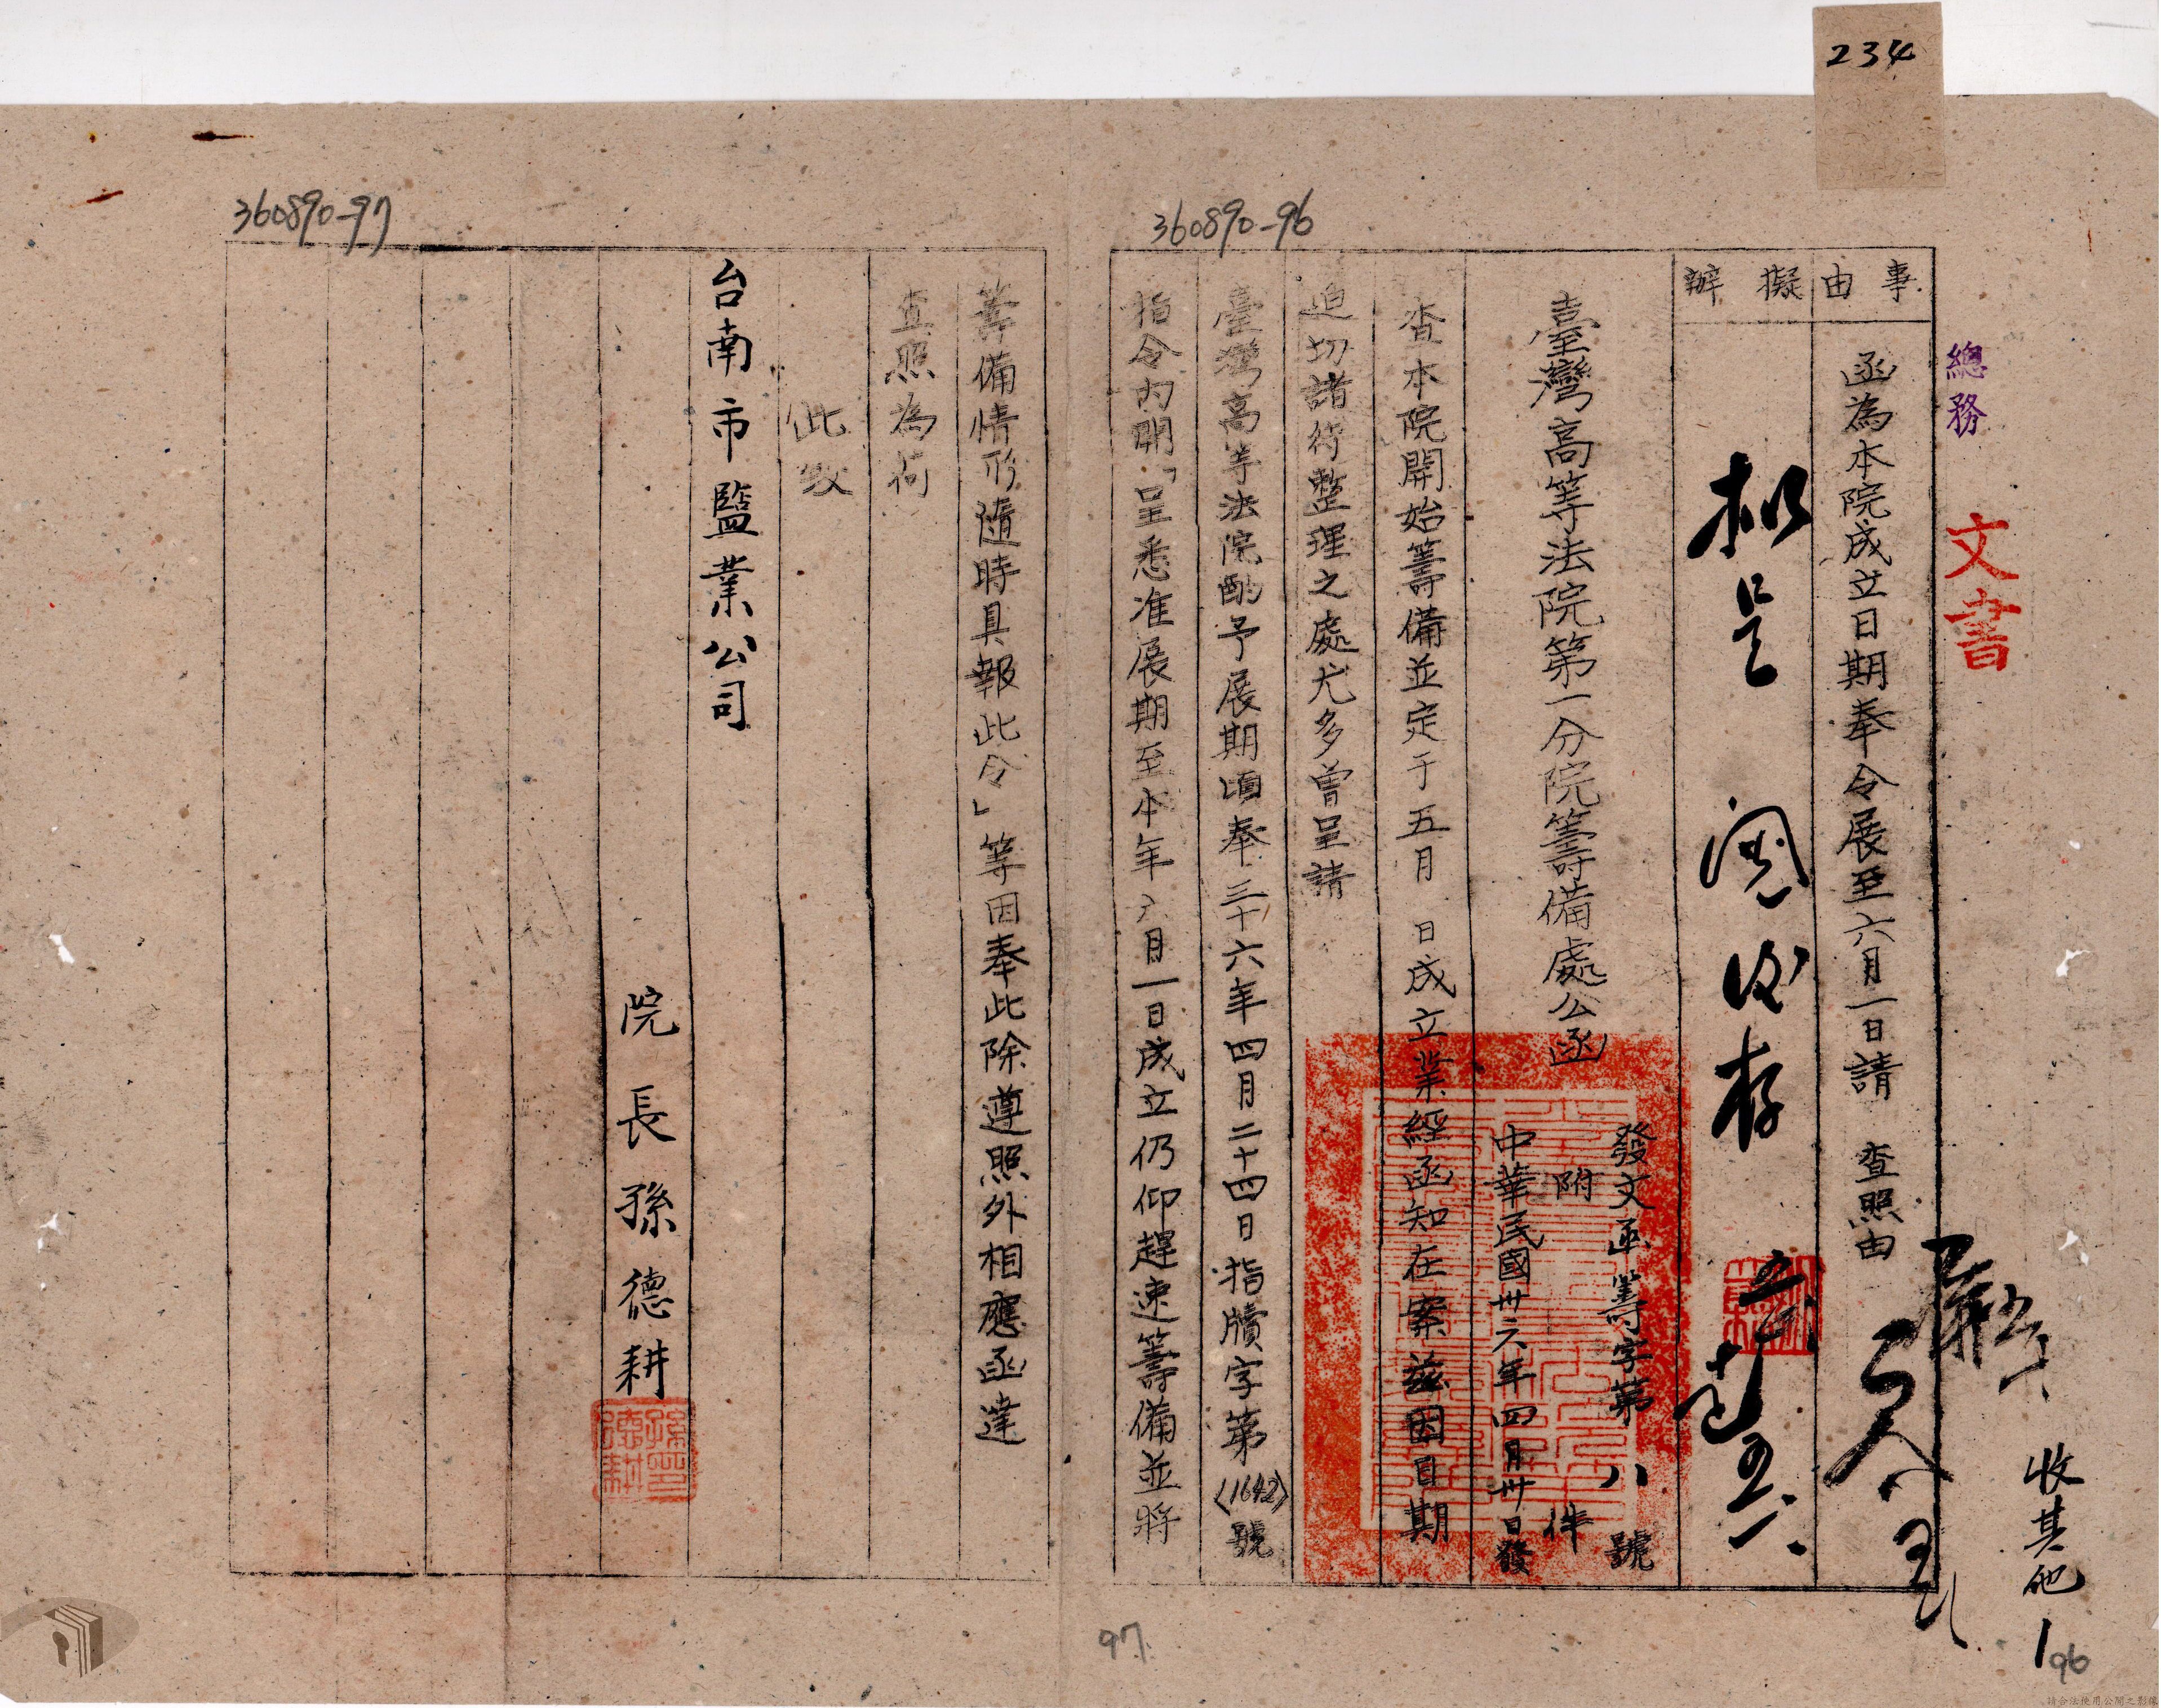 234
360890-96
360890-97
總務
文書
事由
擬辦
函為本院成立日期奉令展至六月一日請 查照由
擬呈 閱後存
臺灣高等法院第一分院籌備處公函
發文函籌字第八號
附 件
中華民國卅六年四月卅日發
查本院開始籌備並定于五月 日成立業經函知在案茲因日期
迫切諸待整理之處尤多曾呈請
臺灣高等法院酌予展期頃奉三十六年四月二十四日指牘字第(1642)號
指令內開「呈悉准展期至本年六月一日成立仍仰趕速籌備並將
籌備情形隨時具報此令」等因奉此除遵照外相應函達
查照為荷
此致
台南市鹽業公司
院長孫德耕
孫德耕印
收其他1
96
97
請合法使用公開之影像